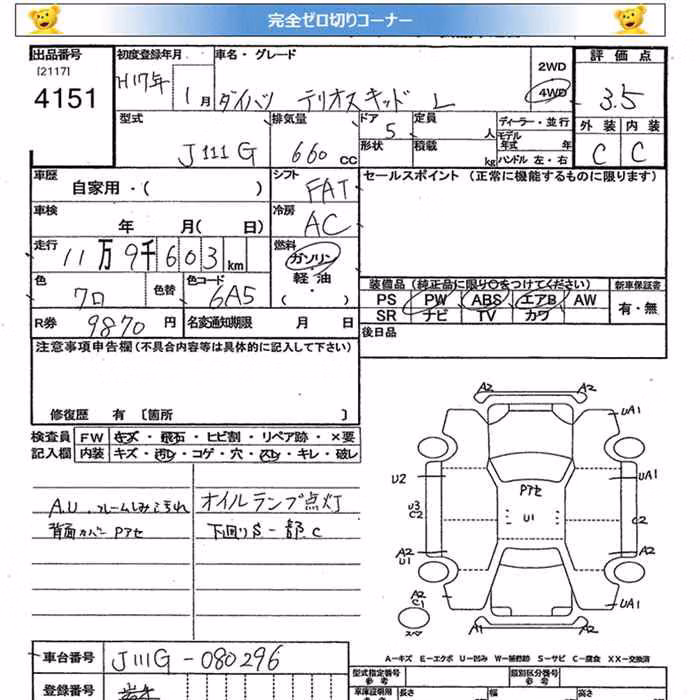 完全ゼロ切りコーナー
出品番号 初度登録年月 車名・グレード 評価点
[2117] 4151 H17年 1月 ダイハツ テリオスキッド L 2WD 4WD 3.5
型式 排気量 ドア 定員 ディーラー・並行 外装 内装
J111G 660 cc 5 人 モデル年式 年 C C
形状 積載 kg ハンドル 左・右
車歴 シフト セールスポイント (正常に機能するものに限ります)
自家用・( ) FAT
車検 冷房
年 月( 日) AC
走行 燃料
11万9千603km ガソリン
軽・油
( )
色 色替 色コード 装備品 (純正品に限り○をつけてください) 新車保証書
クロ 6A5 PS PW ABS エアB AW 有・無
SR ナビ TV カワ
R券 9870円 名変通知期限 月 日 後日品
注意事項申告欄(不具合内容等は具体的に記入して下さい)
修復歴 有 [箇所 ]
検査員 FW キズ・飛石・ヒビ割・リペア跡・×要
記入欄 内装 キズ・汚レ・コゲ・穴・スレ・キレ・破レ
A.U. フレームしみこ汚れ オイルランプ点灯
背面カバー Pアセ 下回りS一部C
A2 A2
UA1
U2 Pアセ UA1
U3 C2 U1 C2
A2 U1 A2
A2 C1 UA1
スペア A1 A2
A−キズ E−エクボ U−凹み W−補修跡 S−サビ C−腐食 XX−交換済
車台番号 J111G-080296 型式指定番号 参考 類別区分番号 参考
登録番号 車庫証明用 長さ 幅 高さ